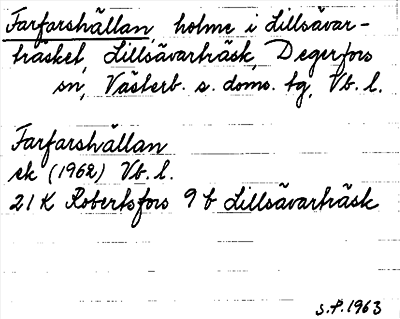 Farfarshällan, holme i Lillsävar-
träsket, Lillsävarträsk, Degerfors
sn, Västerb. s. doms. tg, Vb. l.
Farfarshällan
ek (1962) Vb. l.
21 K Robertsfors 9 b Lillsävarträsk
S.P. 1963